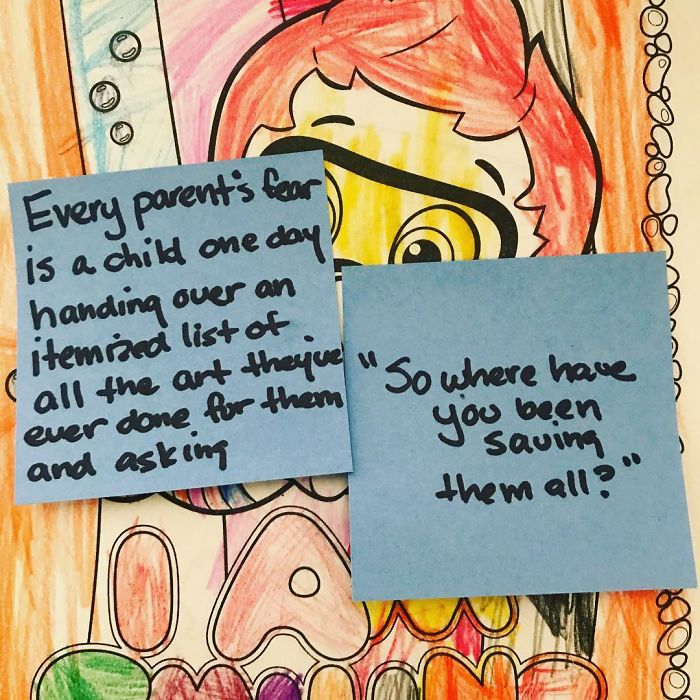 Every parent's fear
is a child one day
handing over an
itemized list of
all the art they've
ever done for them
and asking
"So where have
you been
saving
them all?"